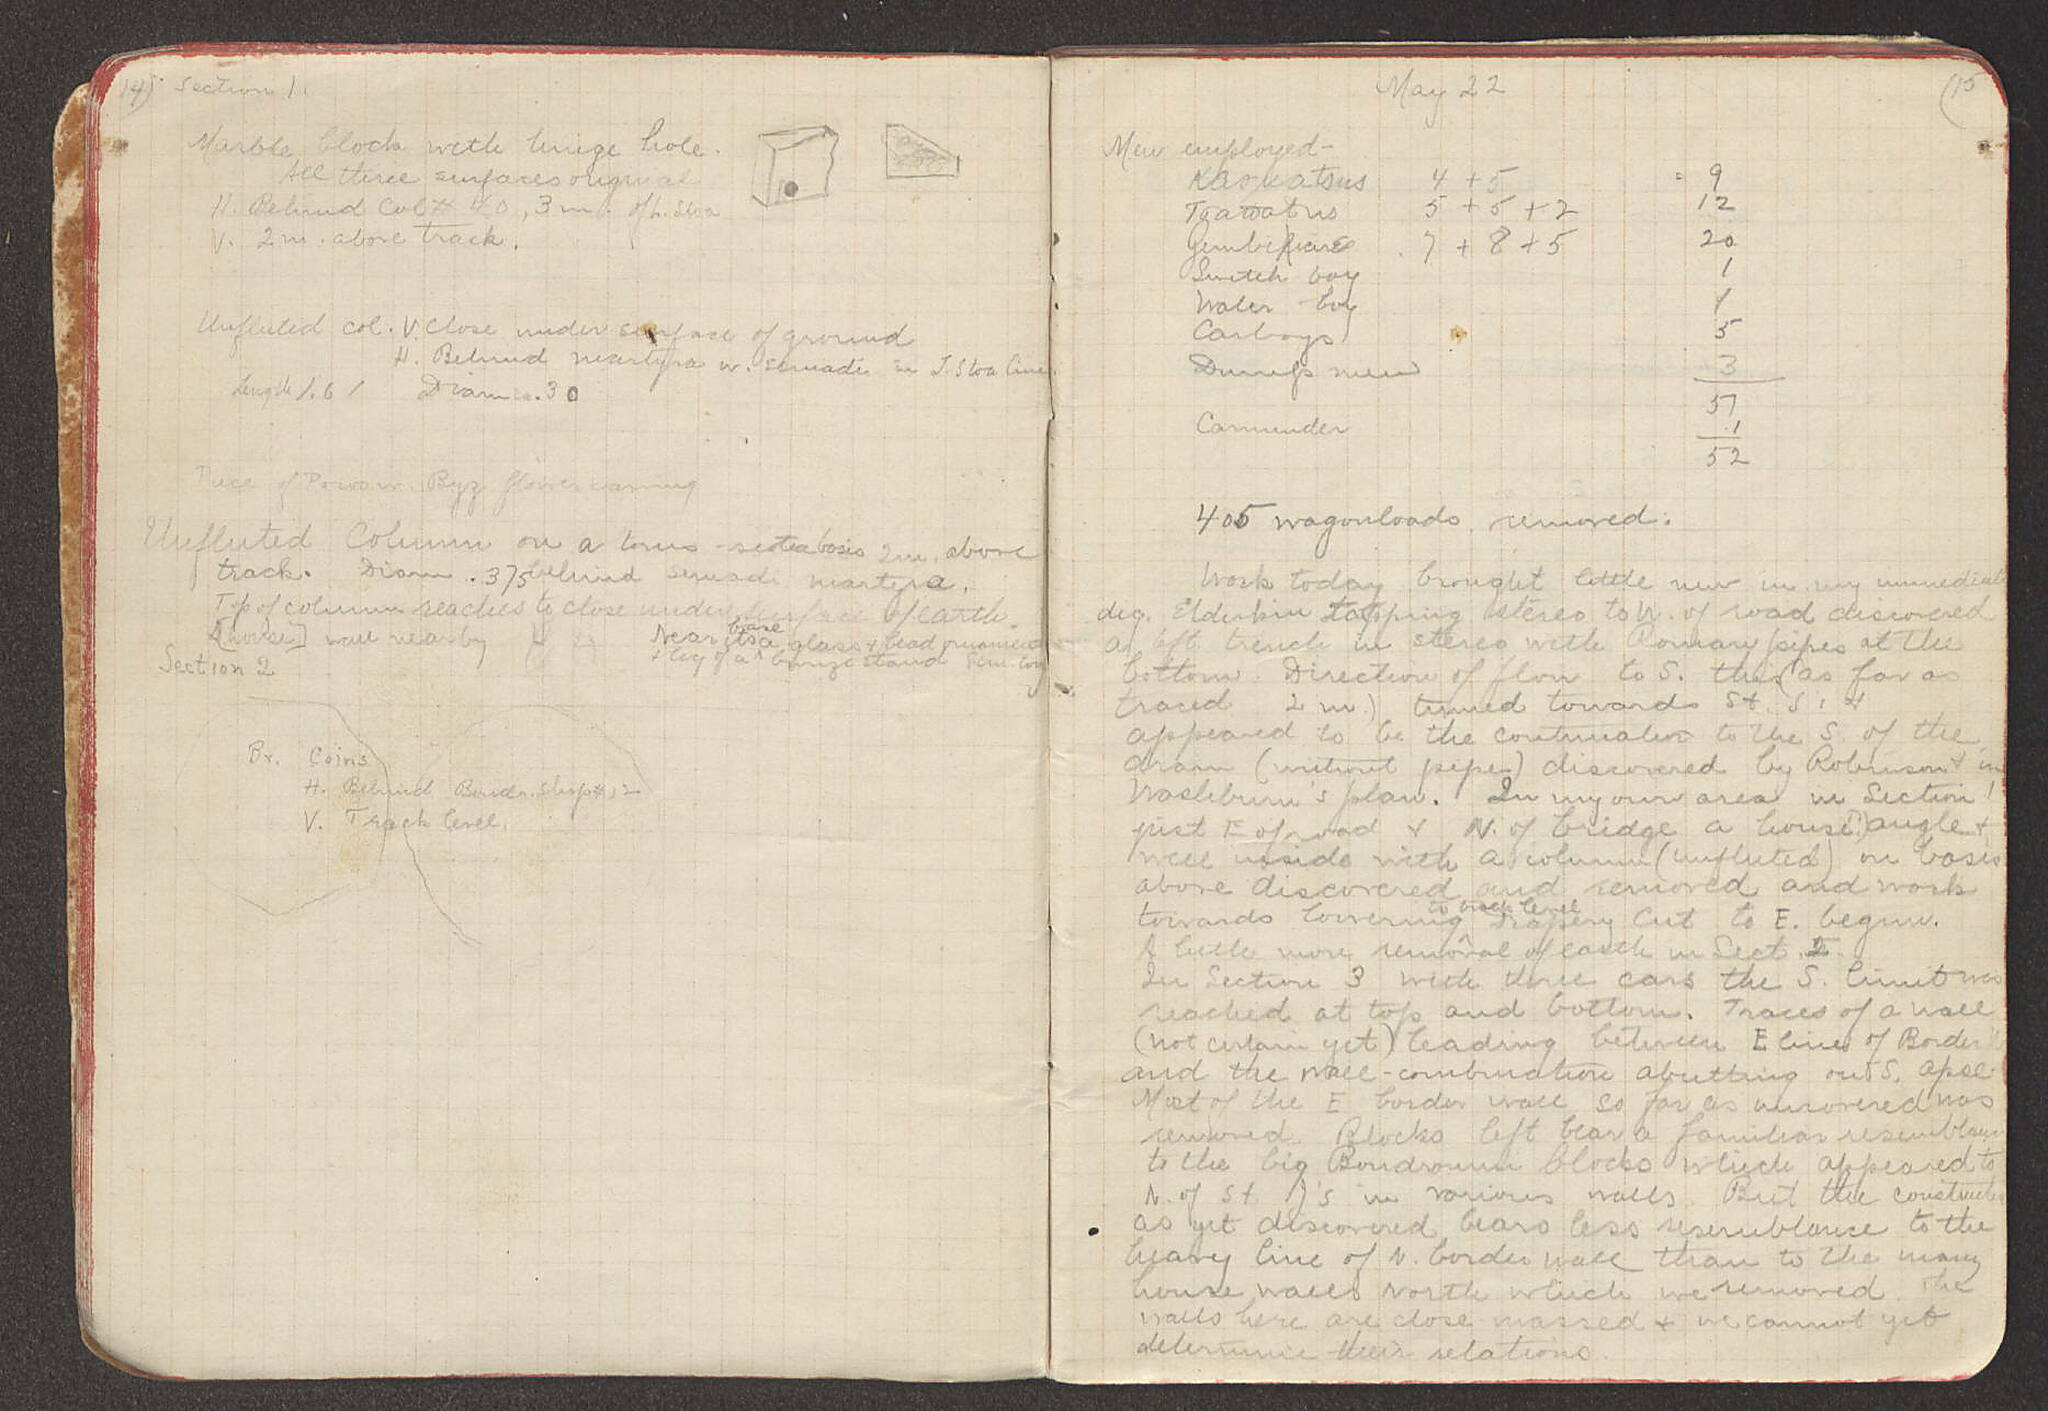 14) Section 1.
Marble block with hinge hole.
All three surfaces original
H. Behind Col # 40, 3 m. of L. Stoa
V. 2 m. above track.
Unfluted col. V. Close under surface of ground
H. Behind martyra w. semadi in L. Stoa line.
Length 1.61 Diam .30
Piece of Poros w. Byz flower carving
Unfluted Column on a torus-scotia basis 2m. above
track. Diam .375 behind semadi martyra.
Top of column reaches to close under surface of earth.
[house] wall nearby Near its base a glass & bead
+ leg of a bronze stand
Section 2
Br. Coins
H. Behind Boudr. Shop # 12
V. Track level.
May 22 (15
Men employed-
4 + 5 = 9
5 + 5 + 2 12
7 + 8 + 5 20
Switch boy 1
Water boy 1
Carboys 5
Dumps men 3
51
Carmender 1
52
405 wagonloads removed.
Work today brought little new in my immediate
dig. Elderkin tapping stereo to W. of road discovered
a left trench in stereo with Roman pipes at the
bottom. Direction of flow to S. this (as far as
traced 2 m.) turned towards St. S; &
appeared to be the continuation to the S. of the
drain (without pipe) discovered by Robinson & in
Washburn's plan. In my own area in Section 1
just E of road & N. of bridge a house(?) angle &
well inside with a column (unfluted) on basis
above discovered and removed and work
towards lowering to track level Trapezy Cut to E. begun.
A little more removal of earth in Sect. 2.
In Section 3 with three cars the S. limit was
reached at top and bottom. Traces of a wall
(not certain yet) leading between E line of Border
and the wall-combination abutting on S. apse.
Most of the E border wall so far as uncovered was
removed. Blocks left bear a familiar resemblance
to the big Boudroumi blocks which appeared to
N. of St. J's in various walls. But the construction
as yet discovered bears less resemblance to the
heavy line of N. border wall than to the many
house walls North which we removed. The
walls here are close massed & we cannot yet
determine their relations.